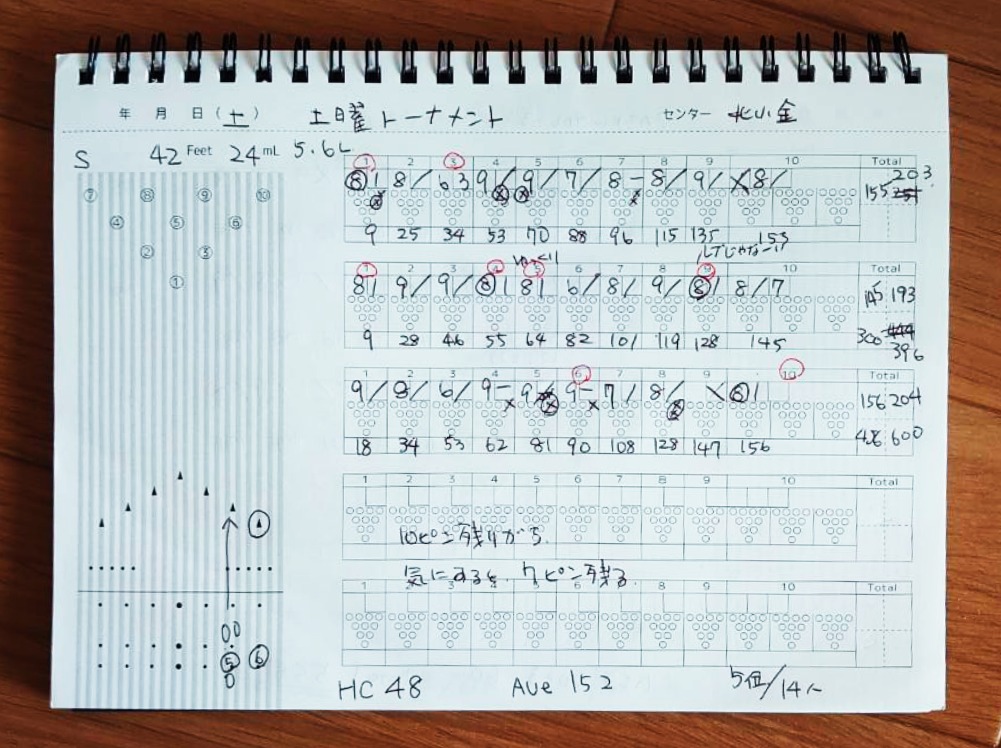 年 月 日(土) 土曜トーナメント センター 北小金
S 42 Feet 24 mL 5.6L
1 2 3 4 5 6 7 8 9 10 Total
⑧1 8/ 63 9/ 9/ 7/ 8- 8/ 9/ X8/
203
155
9 25 34 53 70 88 96 115 135 153
ゆっくり
1 2 3 4 5 6 7 8 9 10 Total
81 9/ 9/ ⑧1 81 6/ 8/ 9/ ⑧1 8/7
145 193
9 28 46 55 64 82 101 119 128 145
300 444
396
1 2 3 4 5 6 7 8 9 10 Total
9/ 8/ 6/ 9- 9/ 9- 7/ 8/ X ⑧1
156 204
18 34 53 62 81 90 108 128 147 156
456 600
1 2 3 4 5 6 7 8 9 10 Total
10ピン残りがち
気にすると、7ピン残る
1 2 3 4 5 6 7 8 9 10 Total
⑦ ⑧ ⑨ ⑩
④ ⑤ ⑥
② ③
①
⑤ ⑥
HC 48 Ave 152 5位/14人